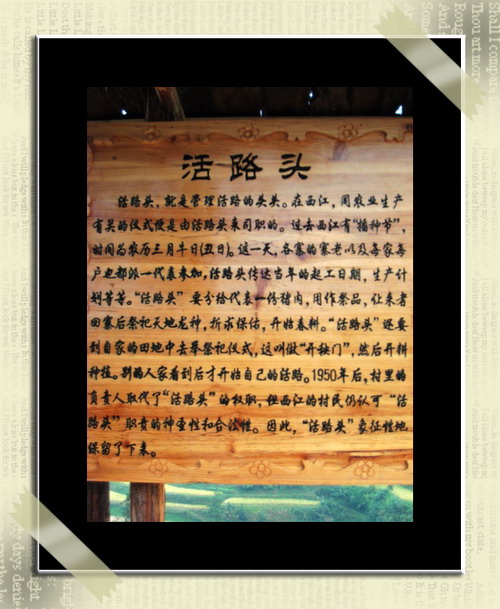 Shall I compa
Thou art more
活路头
活路头，就是管理活路的头头。在西江，同农业生产
有关的仪式便是由活路头来司职的。过去西江有“播种节”，
时间为农历三月牛日(丑日)。这一天，各寨的寨老以及每家每
户也都派一代表参加，活路头传达当年的起工日期，生产计
划等等。“活路头”要分给代表一份猪肉，用作祭品，让来者
回寨后祭祀天地龙神，祈求保佑，开始春耕。“活路头”还要
到自家的田地中去举祭祀仪式，这叫做“开秧门”，然后开耕
种植。别的人家看到后才开始自己的活路。1950年后，村里的
负责人取代了“活路头”的权职，但西江的村民仍认可“活
路头”职责的神圣性和合法性。因此，“活路头”象征性地
保留了下来。